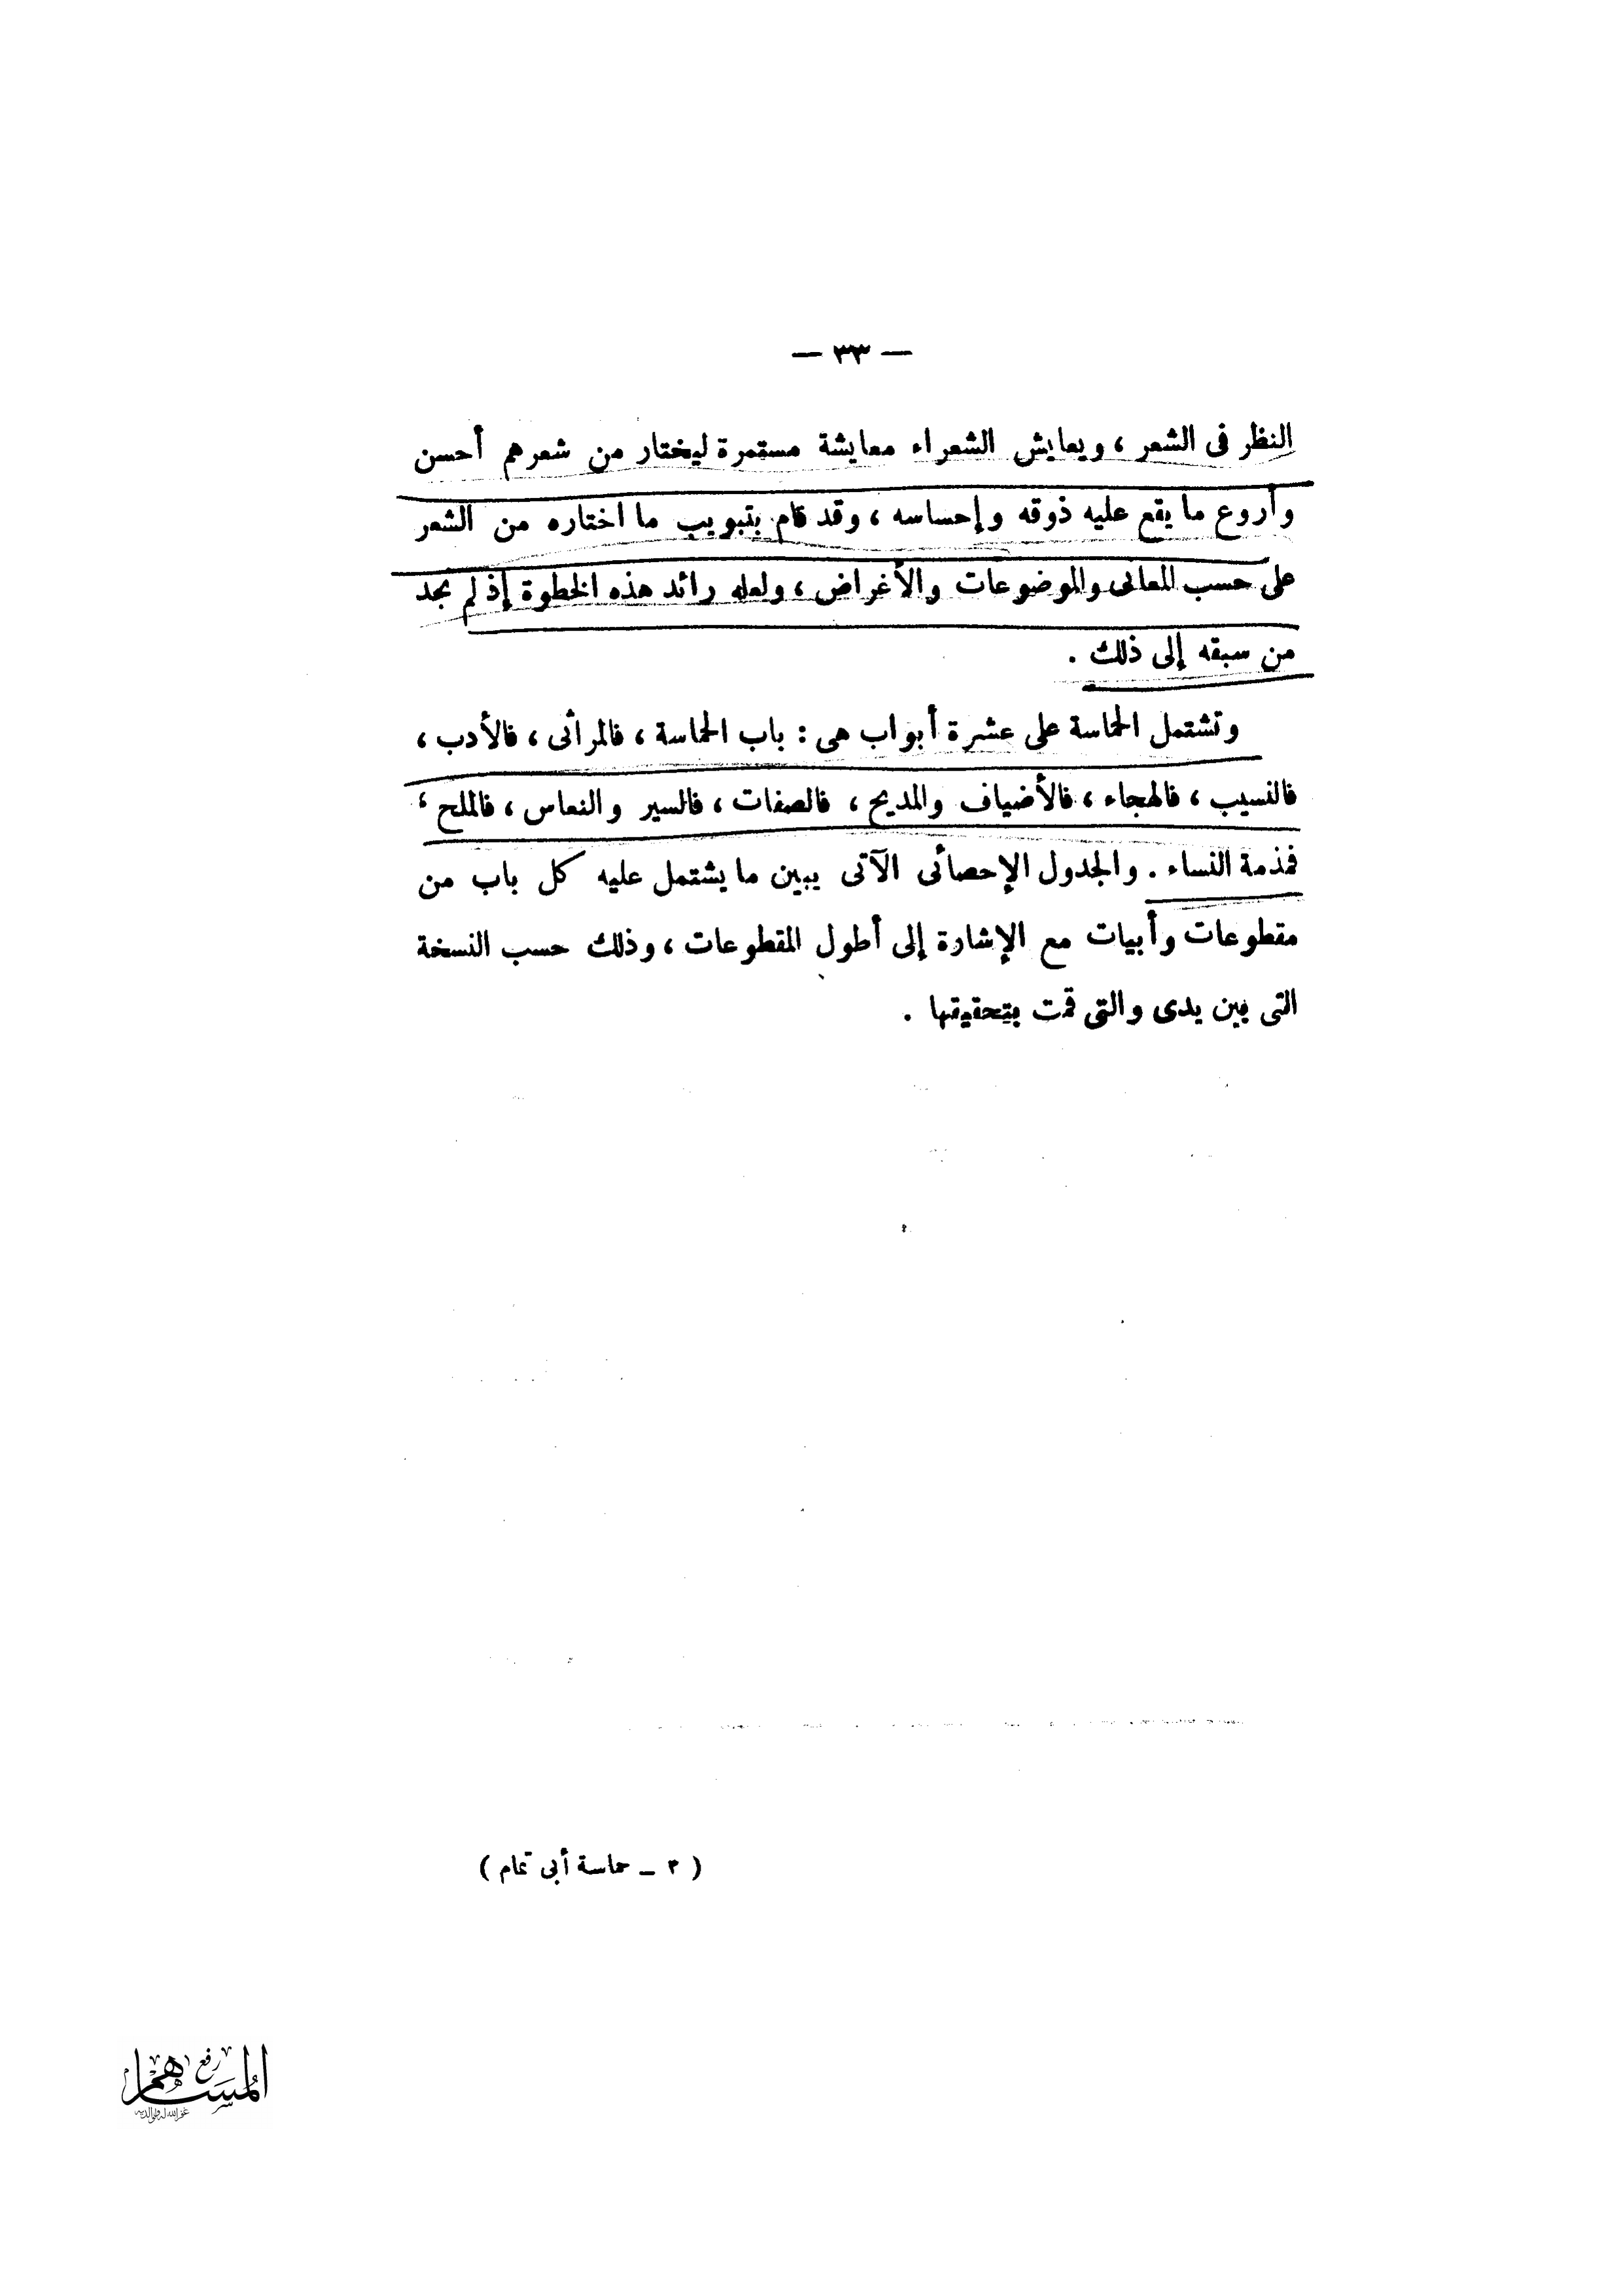 — ٣٣ —
النظر فى الشعر ، ويعايش الشعراء معايشة مستمرة ليختار من شعرهم أحسن
وأروع ما يقع عليه ذوقه وإحساسه ، وقد قام بتبويب ما اختاره من الشعر
على حسب المعانى والموضوعات والأغراض ، ولعله رائد هذه الخطوة إذ لم نجد
من سبقه إلى ذلك .
وتشتمل الحماسة على عشرة أبواب هى : باب الحماسة ، فالمراثى ، فالأدب ،
فالنسيب ، فالهجاء ، فالأضياف والمديح ، فالصفات ، فالسير والنعاس ، فالملح ،
فمذمة النساء . والجدول الإحصائى الآتى يبين ما يشتمل عليه كل باب من
مقطوعات وأبيات مع الإشارة إلى أطول المقطوعات ، وذلك حسب النسخة
التى بين يدى والتى قمت بتحقيقها .
( ٣ – حماسة أبى تمام )
رفع
المساهم
غفر الله له ولوالديه